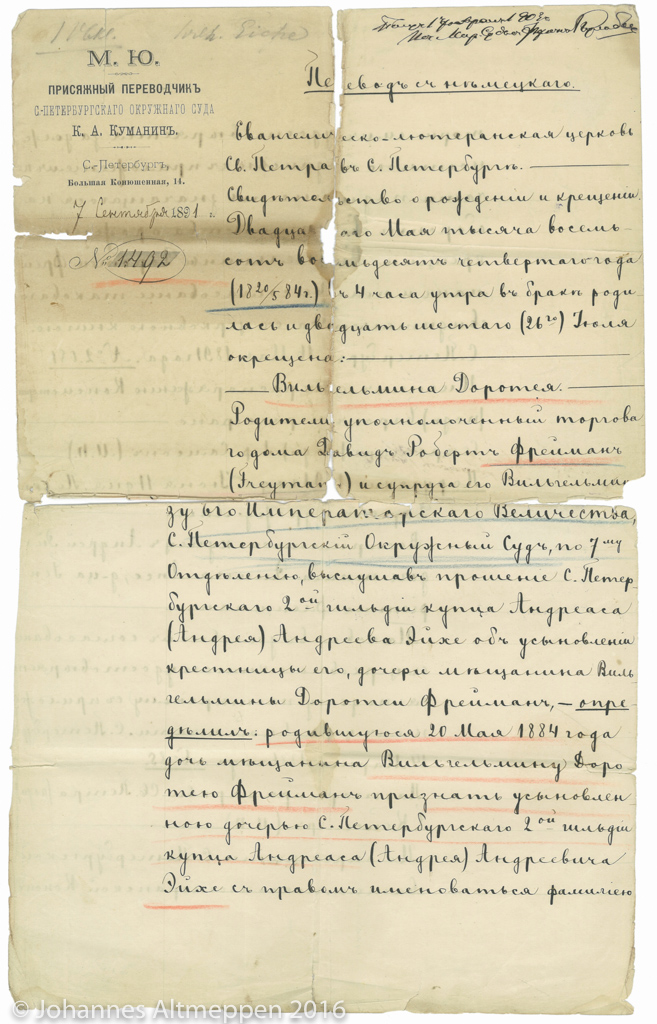 Wilh. Eiche
М. Ю.
ПРИСЯЖНЫЙ ПЕРЕВОДЧИКЪ
С-ПЕТЕРБУРГСКАГО ОКРУЖНАГО СУДА
К. А. КУМАНИНЪ.
С.-Петербургъ,
Большая Конюшенная, 14.
7 Сентября 1891 г.
№ 1492
Переводъ съ нѣмецкаго.
Евангелическо-лютеранская церковь
Св. Петра въ С. Петербургѣ.
Свидѣтельство о рожденіи и крещеніи.
Двадцатаго Мая тысяча восемь-
сотъ восемьдесятъ четвертаго года
(18 20/5 84 г.) въ 4 часа утра въ бракѣ роди-
лась и двадцать шестаго (26го) Іюля
окрещена:
Вильгельмина Доротея.
Родители уполномоченный торгова-
го дома Давидъ Робертъ Фрейманъ
(Freyman) и супруга его Вильгельми
зу Его Императорскаго Величества,
С. Петербургскій Окружный Судъ, по 7му
Отдѣленію, выслушавъ прошеніе С. Петер-
бургскаго 2ой гильдіи купца Андреаса
(Андрея) Андреева Эйхе объ усыновленіи
крестницы его, дочери мѣщанина Виль
гельмины Доротеи Фрейманъ, — опре-
дѣлилъ: родившуюся 20 Мая 1884 года
дочь мѣщанина Вильгельмину Доро
тею Фрейманъ признать усыновлен
ною дочерью С. Петербургскаго 2ой гильдіи
купца Андреаса (Андрея) Андреевича
Эйхе съ правомъ именоваться фамиліею
© Johannes Altmeppen 2016